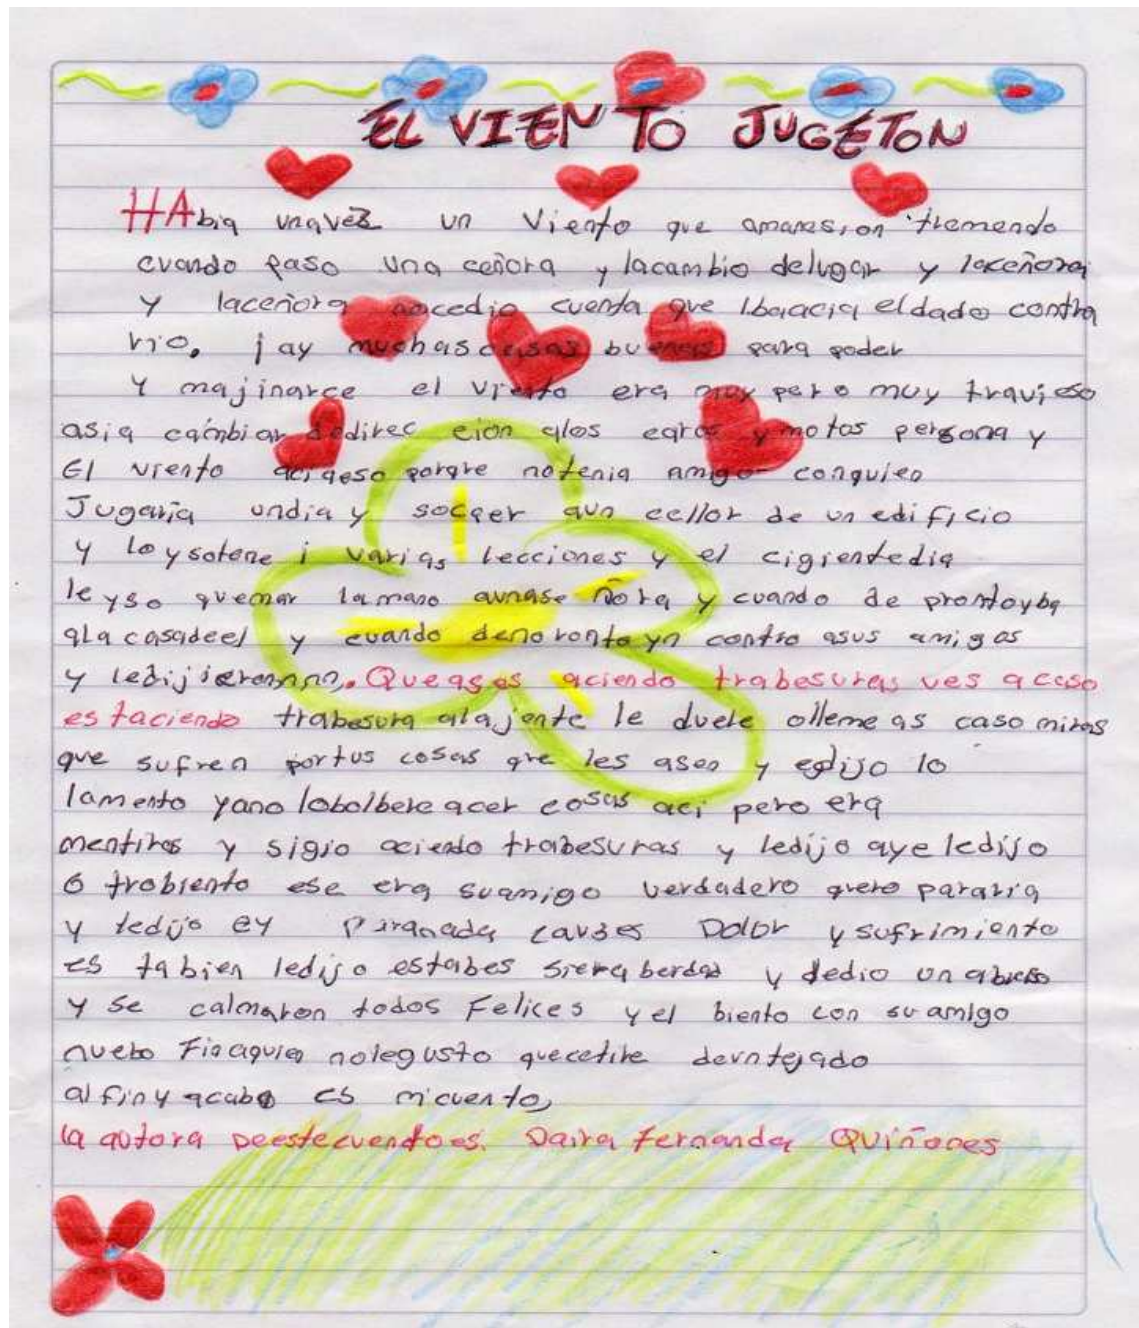 EL VIEN TO JUGETON
HAbia unavez un Viento que amanesion tremendo
cuando paso una ceñora y lacambio delugar y laceñora
y laceñora nocedio cuenta que Ibaacia eldado contra
rio. ¡ay muchas cosas buenas para poder
Y majinarce el viento era muy pero muy travieso
asia cambiar dedirec cion alos caros y motos persona y
El viento aciaeso porqre notenia amigo conquien
Jugaria undia y socaer aun cellor de un edificio
y loysotene i varias lecciones y el cigientedia
leyso quemar lamano aunase ñora y cuando de prontoyba
ala casadeel y cuando yn contro asus amigos
y ledijieron Que as aciendo trabesuras ves acaso
estaciendo trabesura alajente le duele olleme as caso miras
que sufren portus cosas qre les asen y eldijo lo
lamento yano lobolbere acer cosas aci pero era
mentiras y sigio aciendo trabesuras y ledijo aye ledijo
o trobiento ese era suamigo verdadero
y ledijo ey Paranada causes Dolor y sufrimiento
es tabien ledijo estabes sieraberdad y dedio un abraso
y se calmaron todos Felices y el biento con su amigo
nuebo Fin aquien nolegusto quecetire deuntejado
al finy acabo es micuento,
la autora Deestecuentoes. Daira Fernanda Quiñones